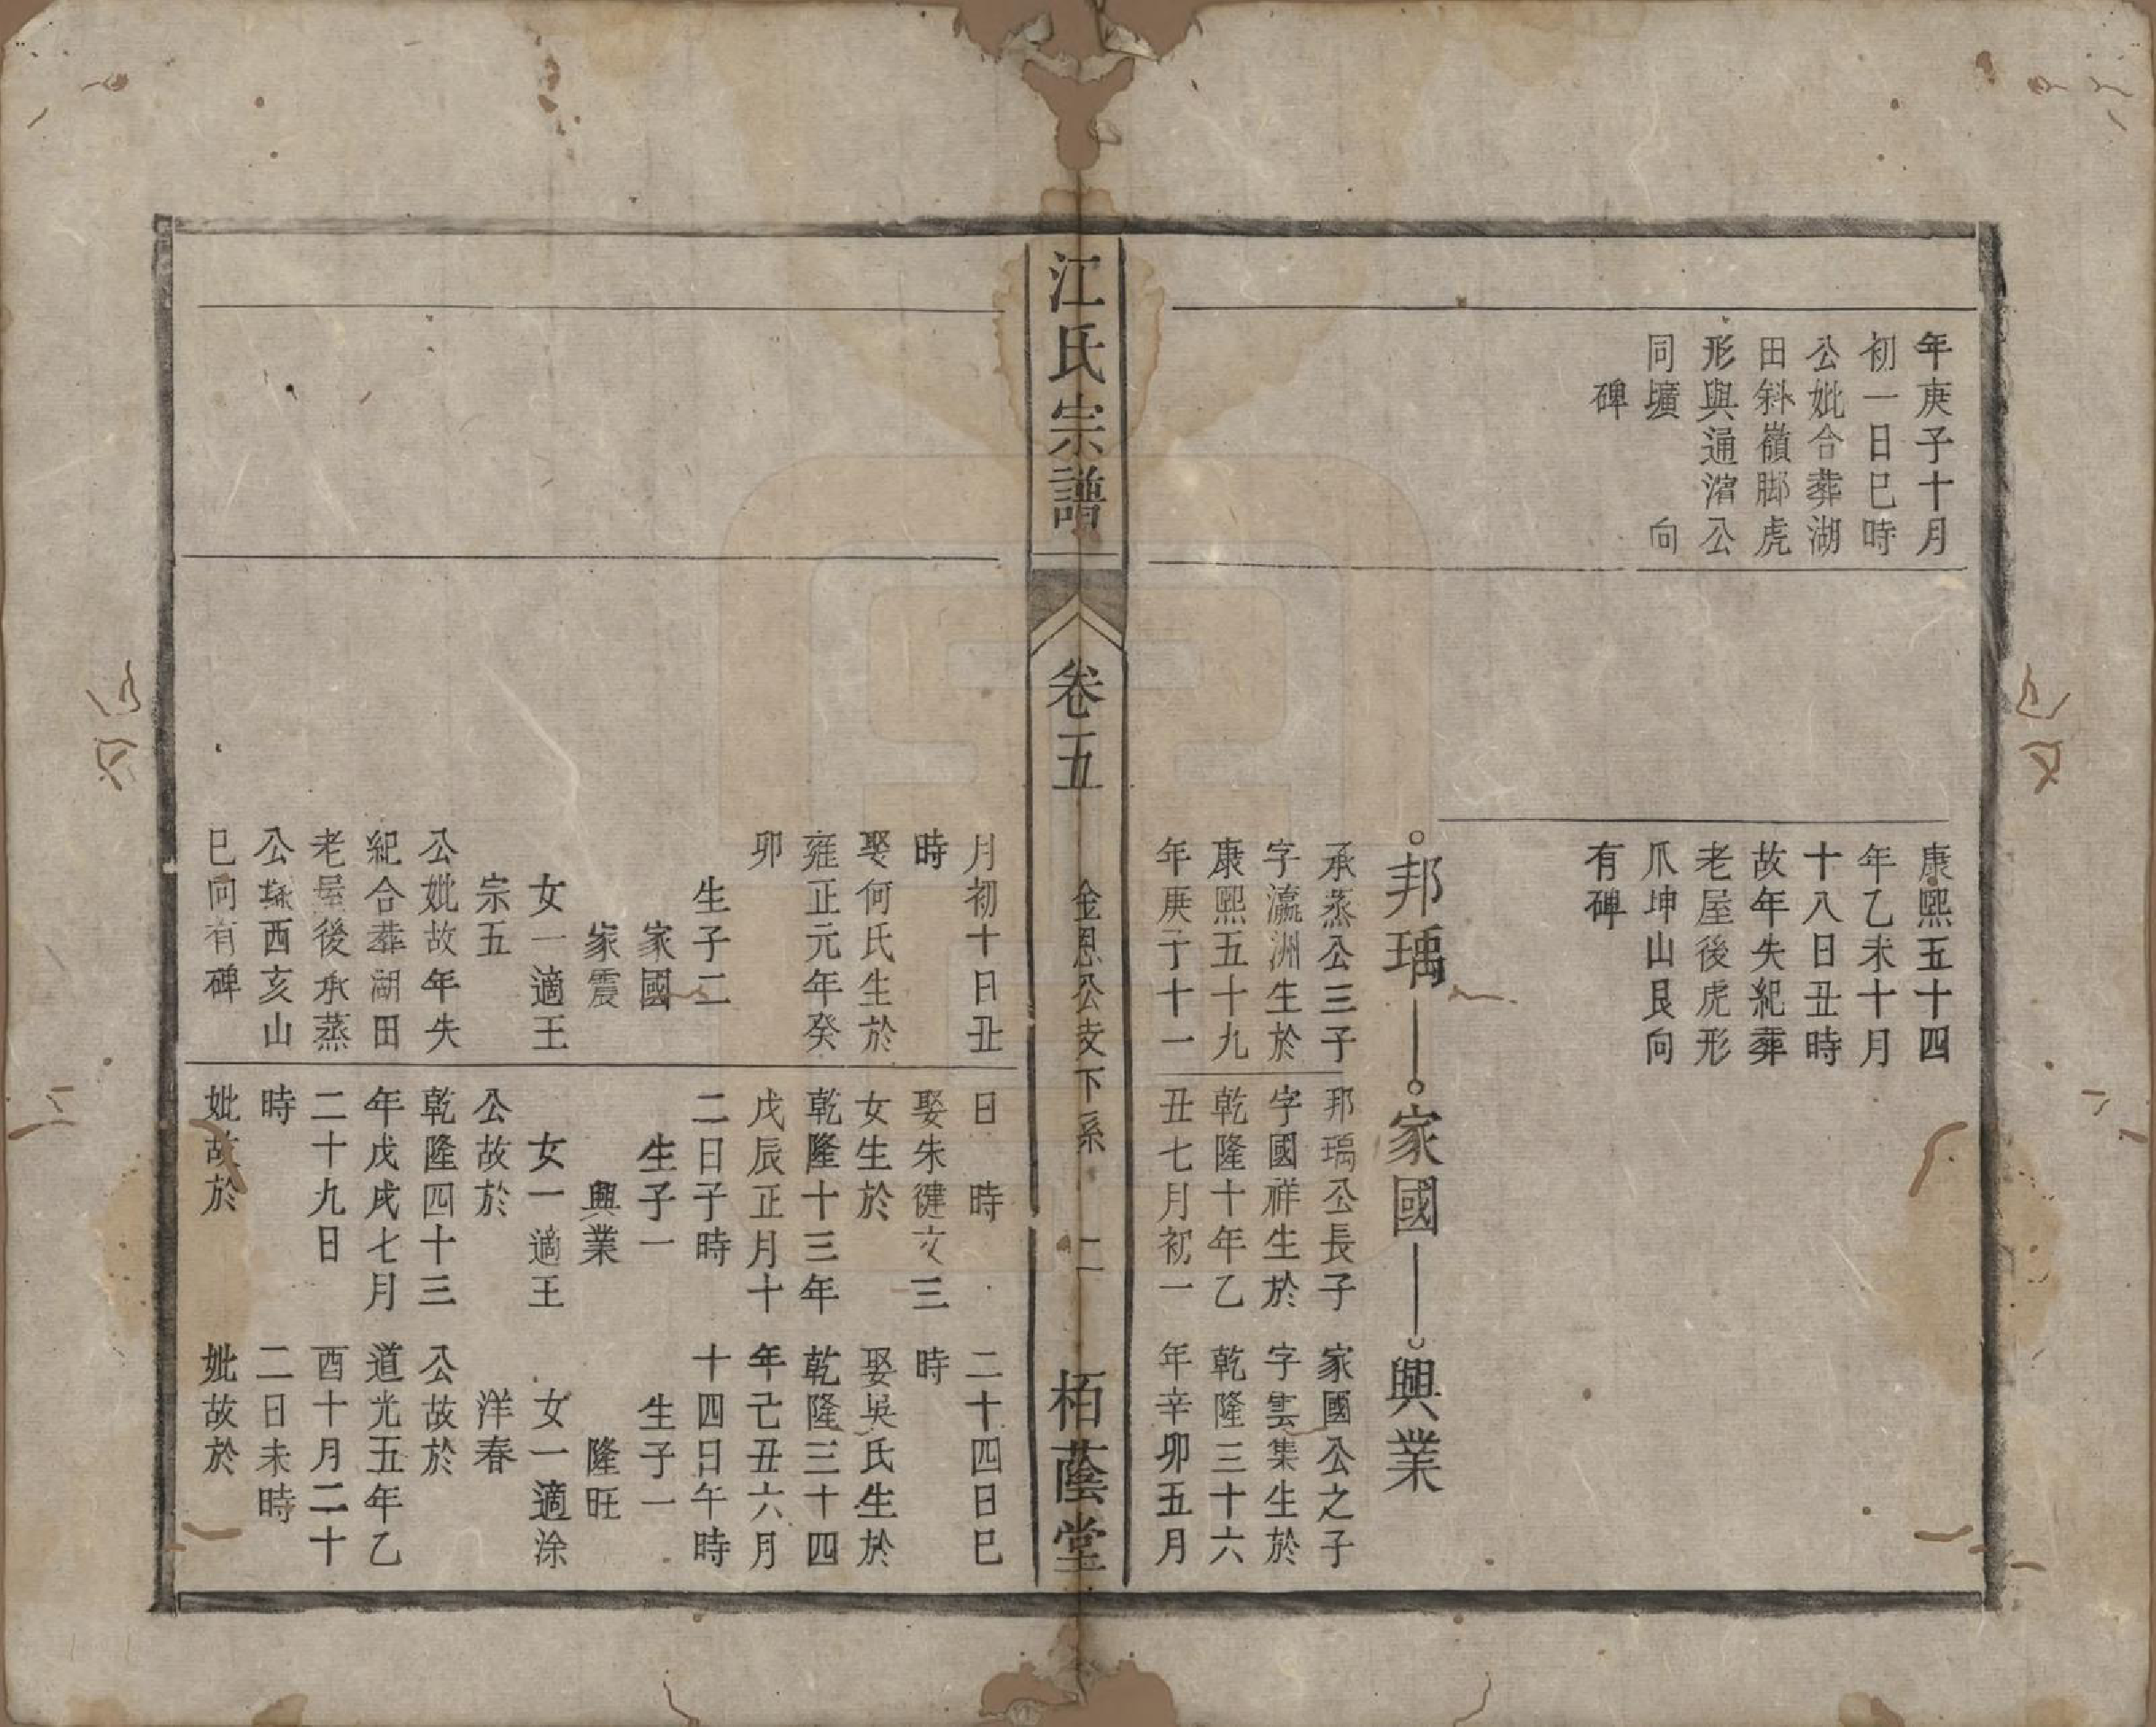 年庚子十月
初一日巳時
公妣合葬湖
田斜嶺脚虎
形與通濱公
同壙　　向
碑
康熙五十四
年乙未十月
十八日丑時
故年失紀葬
老屋後虎形
爪坤山艮向
有碑
邦瑀
家國
興業
承蒸公三子
字瀛洲生於
康熙五十九
年庚子十一
邦瑀公長子
字國祥生於
乾隆十年乙
丑七月初一
家國公之子
字雲集生於
乾隆三十六
年辛卯五月
江氏宗譜
卷五
金恩公支下系
二
栢蔭堂
月初十日丑
時
娶何氏生於
雍正元年癸
卯
生子二
家國
家震
女一適王
宗五
公妣故年失
紀合葬湖田
老屋後承蒸
公塚西亥山
巳向有碑
日　時
娶朱健文三
女生於
乾隆十三年
戊辰正月十
二日子時
生子一
興業
女一適王
公故於
乾隆四十三
年戊戌七月
二十九日
時
妣故於
二十四日巳
時
娶吳氏生於
乾隆三十四
年己丑六月
十四日午時
生子一
隆旺
女一適涂
洋春
公故於
道光五年乙
酉十月二十
二日未時
妣故於